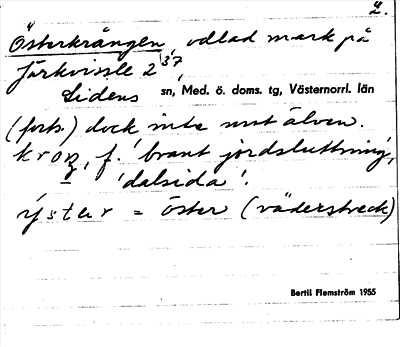 2.
Österkrången, odlad mark på
Järkvissle 2³⁷,
Lidens sn, Med. ö. doms. tg, Västernorrl. län
(forts.) dock inte mot älven.
kroŋ, f. 'brant jordsluttning',
'dalsida'.
ýster = öster (väderstreck)
Bertil Flemström 1955